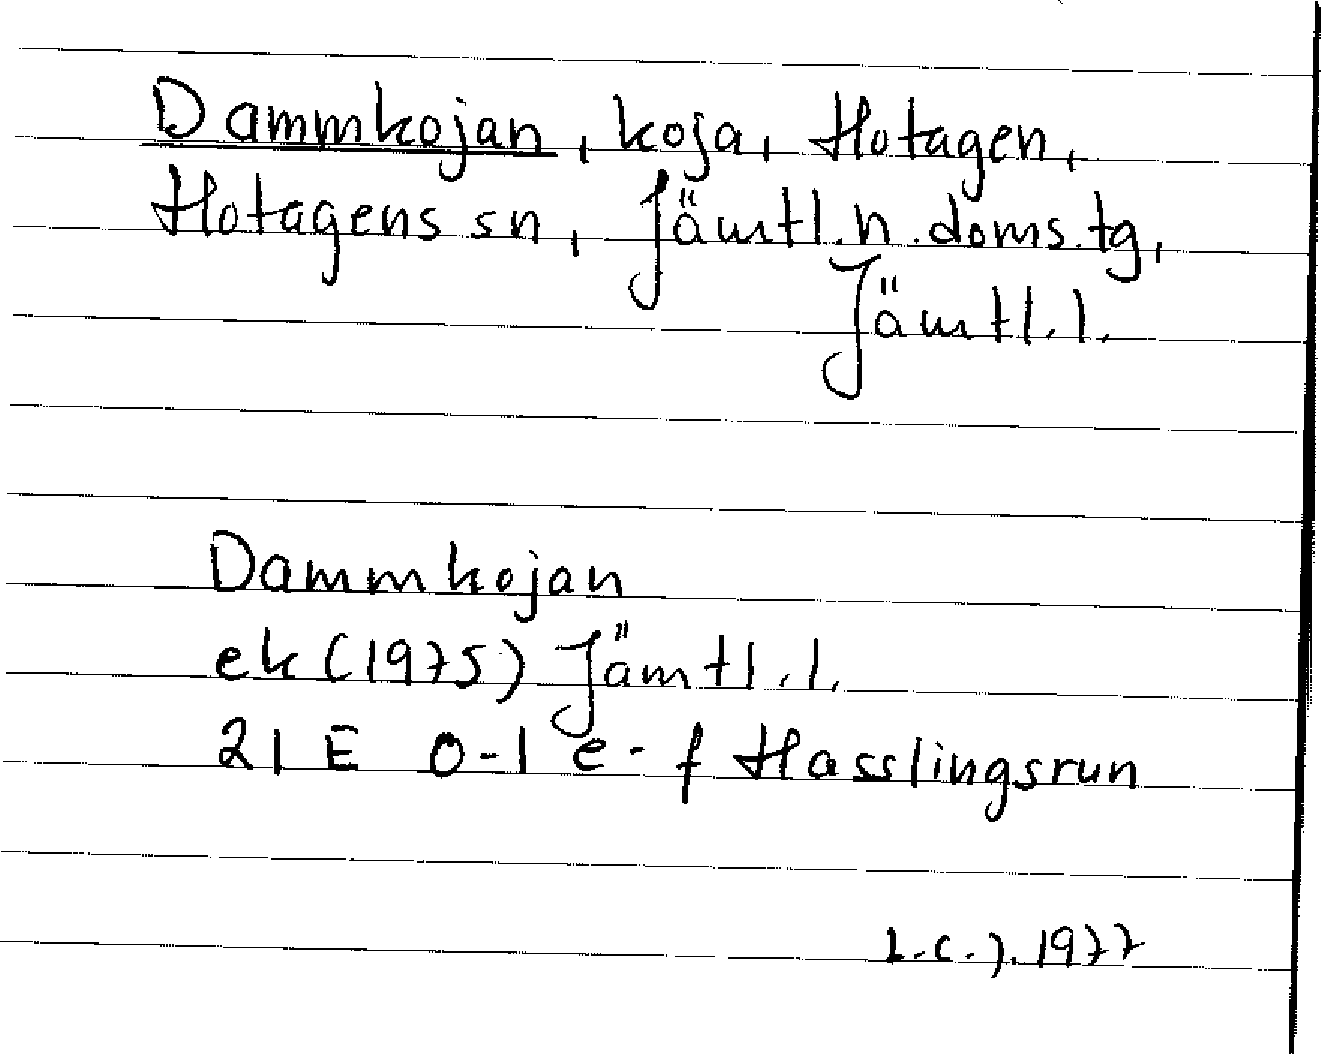 Dammkojan, koja, Hotagen,
Hotagens sn, Jämtl. n. doms. tg,
Jämtl. l.
Dammkojan
ek (1975) Jämtl. l.
21 E 0-1 e-f Hasslingsrun
L.C.J. 1977